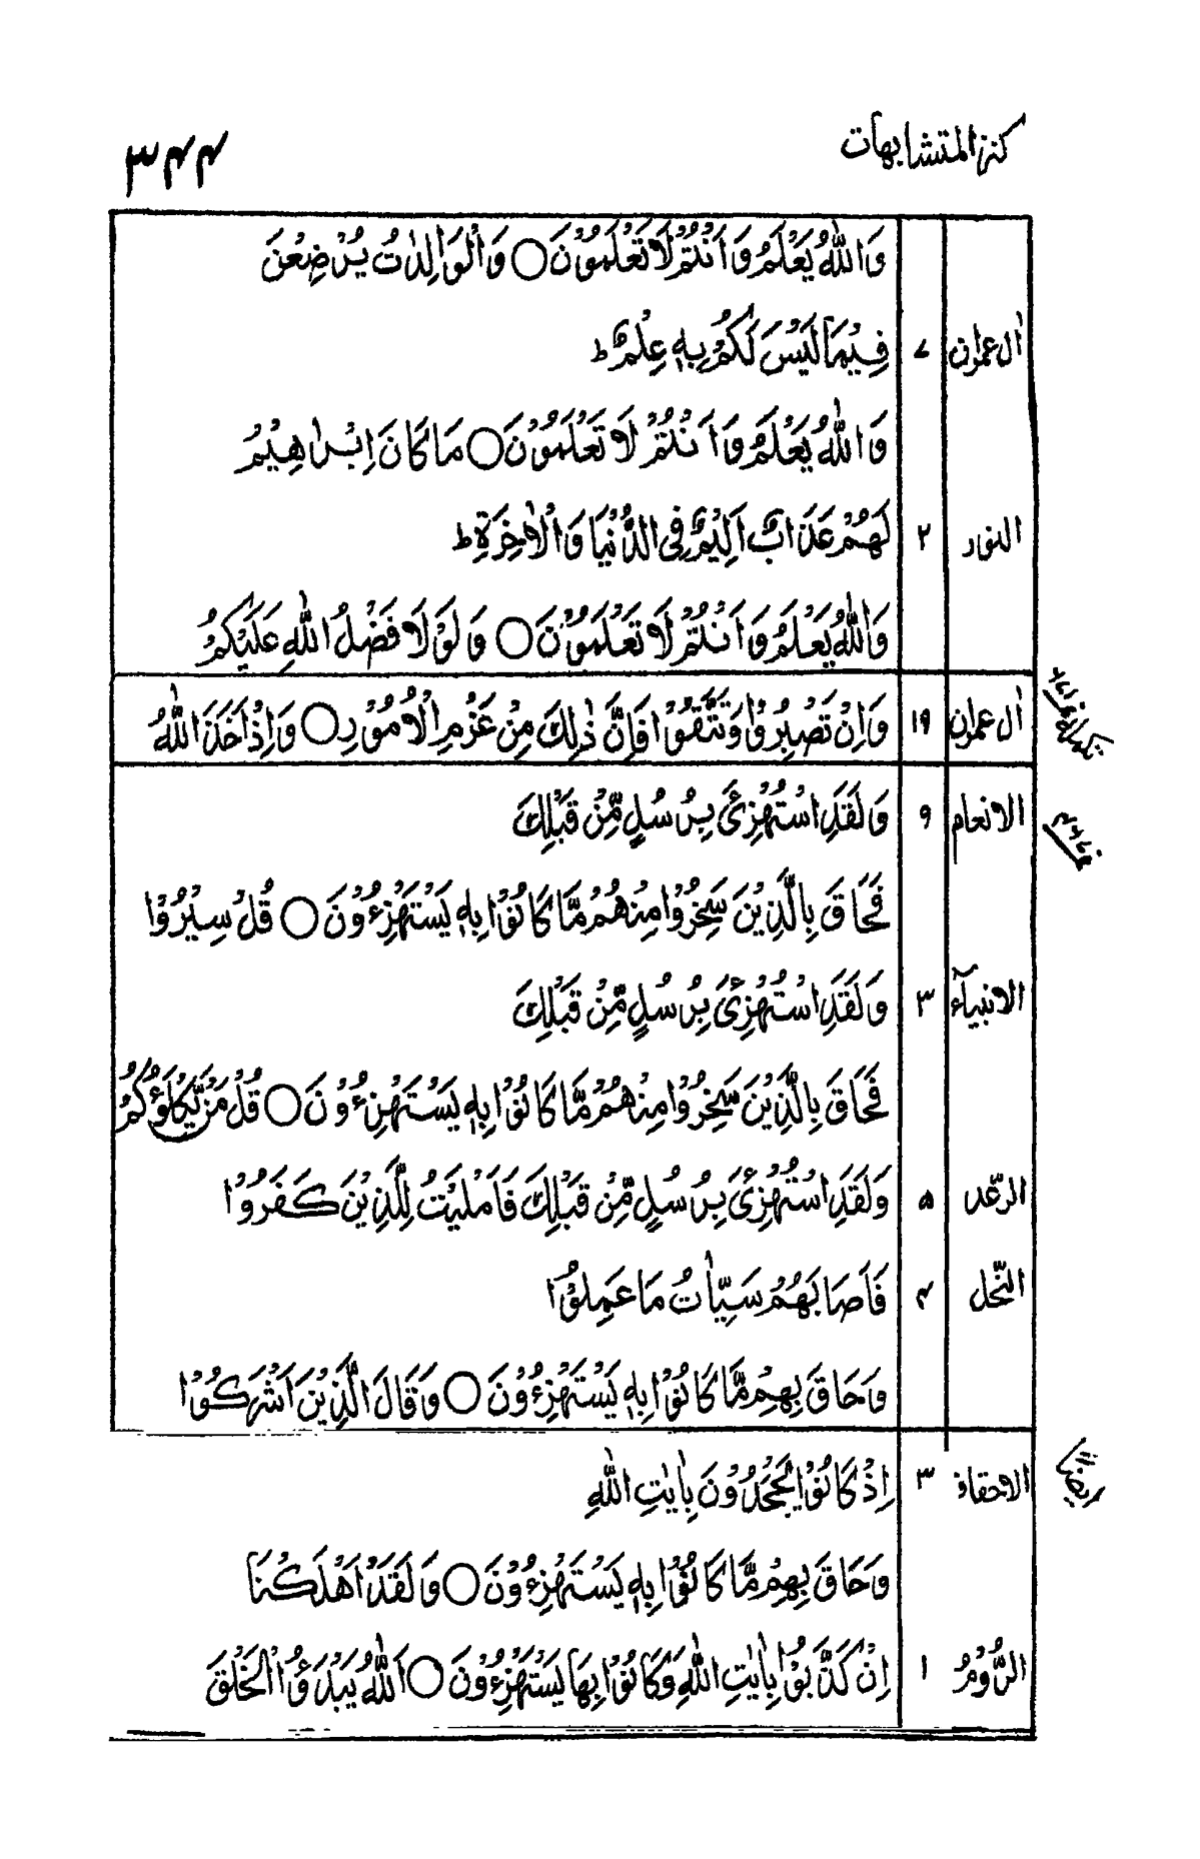 كنز المتشابهات ٣٤٤
وَاللّٰهُ يَعْلَمُ وَاَنْتُمْ لَا تَعْلَمُوْنَ ○ وَالْوَالِدٰتُ يُرْضِعْنَ
اٰل عمران ٧ فِيْمَا لَيْسَ لَكُمْ بِهٖ عِلْمٌ ط
وَاللّٰهُ يَعْلَمُ وَاَنْتُمْ لَا تَعْلَمُوْنَ ○ مَا كَانَ اِبْرٰهِيْمُ
النور ٢ لَهُمْ عَذَابٌ اَلِيْمٌ فِى الدُّنْيَا وَالْاٰخِرَةِ ط
وَاللّٰهُ يَعْلَمُ وَاَنْتُمْ لَا تَعْلَمُوْنَ ○ وَلَوْلَا فَضْلُ اللّٰهِ عَلَيْكُمْ
اٰل عمران ١٩ وَاِنْ تَصْبِرُوْا وَتَتَّقُوْا فَاِنَّ ذٰلِكَ مِنْ عَزْمِ الْاُمُوْرِ ○ وَاِذْ اَخَذَ اللّٰهُ
الانعام ٩ وَلَقَدِ اسْتُهْزِئَ بِرُسُلٍ مِّنْ قَبْلِكَ
فَحَاقَ بِالَّذِيْنَ سَخِرُوْا مِنْهُمْ مَّا كَانُوْا بِهٖ يَسْتَهْزِءُوْنَ ○ قُلْ سِيْرُوْا
الانبيآء ٣ وَلَقَدِ اسْتُهْزِئَ بِرُسُلٍ مِّنْ قَبْلِكَ
فَحَاقَ بِالَّذِيْنَ سَخِرُوْا مِنْهُمْ مَّا كَانُوْا بِهٖ يَسْتَهْزِءُوْنَ ○ قُلْ مَنْ يَّكْلَؤُكُمْ
الرّعد ۵ وَلَقَدِ اسْتُهْزِئَ بِرُسُلٍ مِّنْ قَبْلِكَ فَاَمْلَيْتُ لِلَّذِيْنَ كَفَرُوْا
النّحل ۴ فَاَصَابَهُمْ سَيِّاٰتُ مَا عَمِلُوْا
وَحَاقَ بِهِمْ مَّا كَانُوْا بِهٖ يَسْتَهْزِءُوْنَ ○ وَقَالَ الَّذِيْنَ اَشْرَكُوْا
ايضًا الاحقاف ٣ اِذْ كَانُوْا يَجْحَدُوْنَ بِاٰيٰتِ اللّٰهِ
وَحَاقَ بِهِمْ مَّا كَانُوْا بِهٖ يَسْتَهْزِءُوْنَ ○ وَلَقَدْ اَهْلَكْنَا
الرُّوْمُ ١ اَنْ كَذَّبُوْا بِاٰيٰتِ اللّٰهِ وَكَانُوْا بِهَا يَسْتَهْزِءُوْنَ ○ اَللّٰهُ يَبْدَؤُا الْخَلْقَ